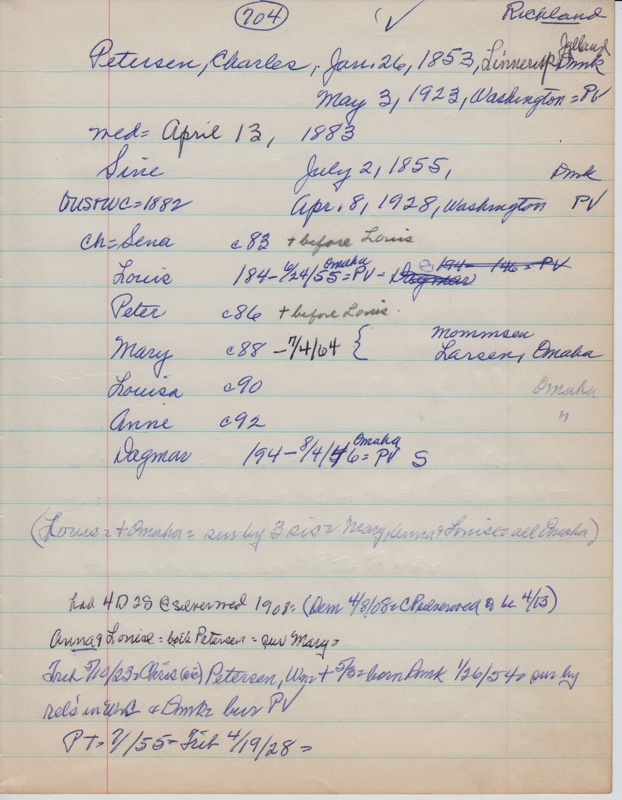 704 Richland
Petersen, Charles, Jan. 26, 1853, Linnerup Jylland Dmk
May 3, 1923, Washington = PV
med= April 13, 1883
Sine July 2, 1855, Dmk
WC=1882 Apr. 8, 1928, Washington PV
ch= Sena c83 + before Louis
Louis 184- 6/24/55= Omaha PV - Dagmar 194- 146 = PV
Peter c86 + before Louis.
Mary c88 - 7/4/64 { Mommsen
Larsen, Omaha
Louisa c90 Omaha
Anne c92 "
Dagmar 194- 8/4/46= Omaha PV S
(Louis= + Omaha= sur by 3 sis= Mary, Anna & Louise= all Omaha)
had 4D 2S @ silverwed 1908= (Dem 4/8/08= C P silverwed to be 4/13)
Anna & Louise= both Petersen= sur Mary=
Trib 5/10/23= Chris (sic) Petersen, Wn= + 5/3= born Dmk 1/26/54= sur by
rels in & Dmk= bur PV
PT= 7/55= Trib 4/19/28=